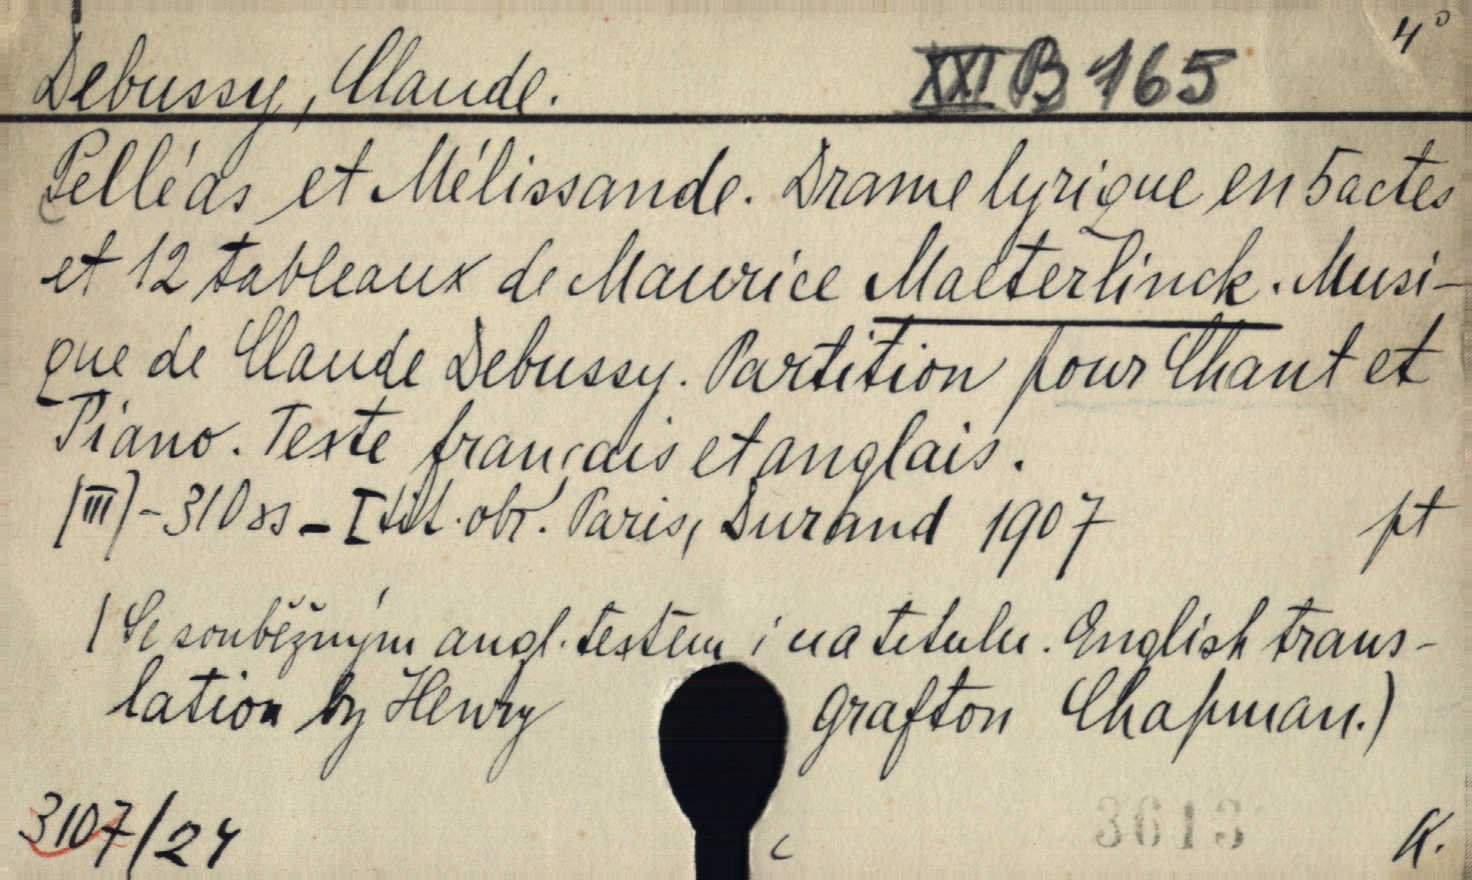 4°
Debussy, Claude. XXI B 165
Pelléas et Mélissande. Drame lyrique en 5 actes
et 12 tableaux de Maurice Maeterlinck. Musi-
que de Claude Debussy. Partition pour Chant et
Piano. Texte français et anglais.
(III) - 310 ss - I tit. obr. Paris, Durand 1907 pt
(Se souběžným angl. textem i na titulu. English trans-
lation by Henry Grafton Chapman.)
3107/24 3613 K.